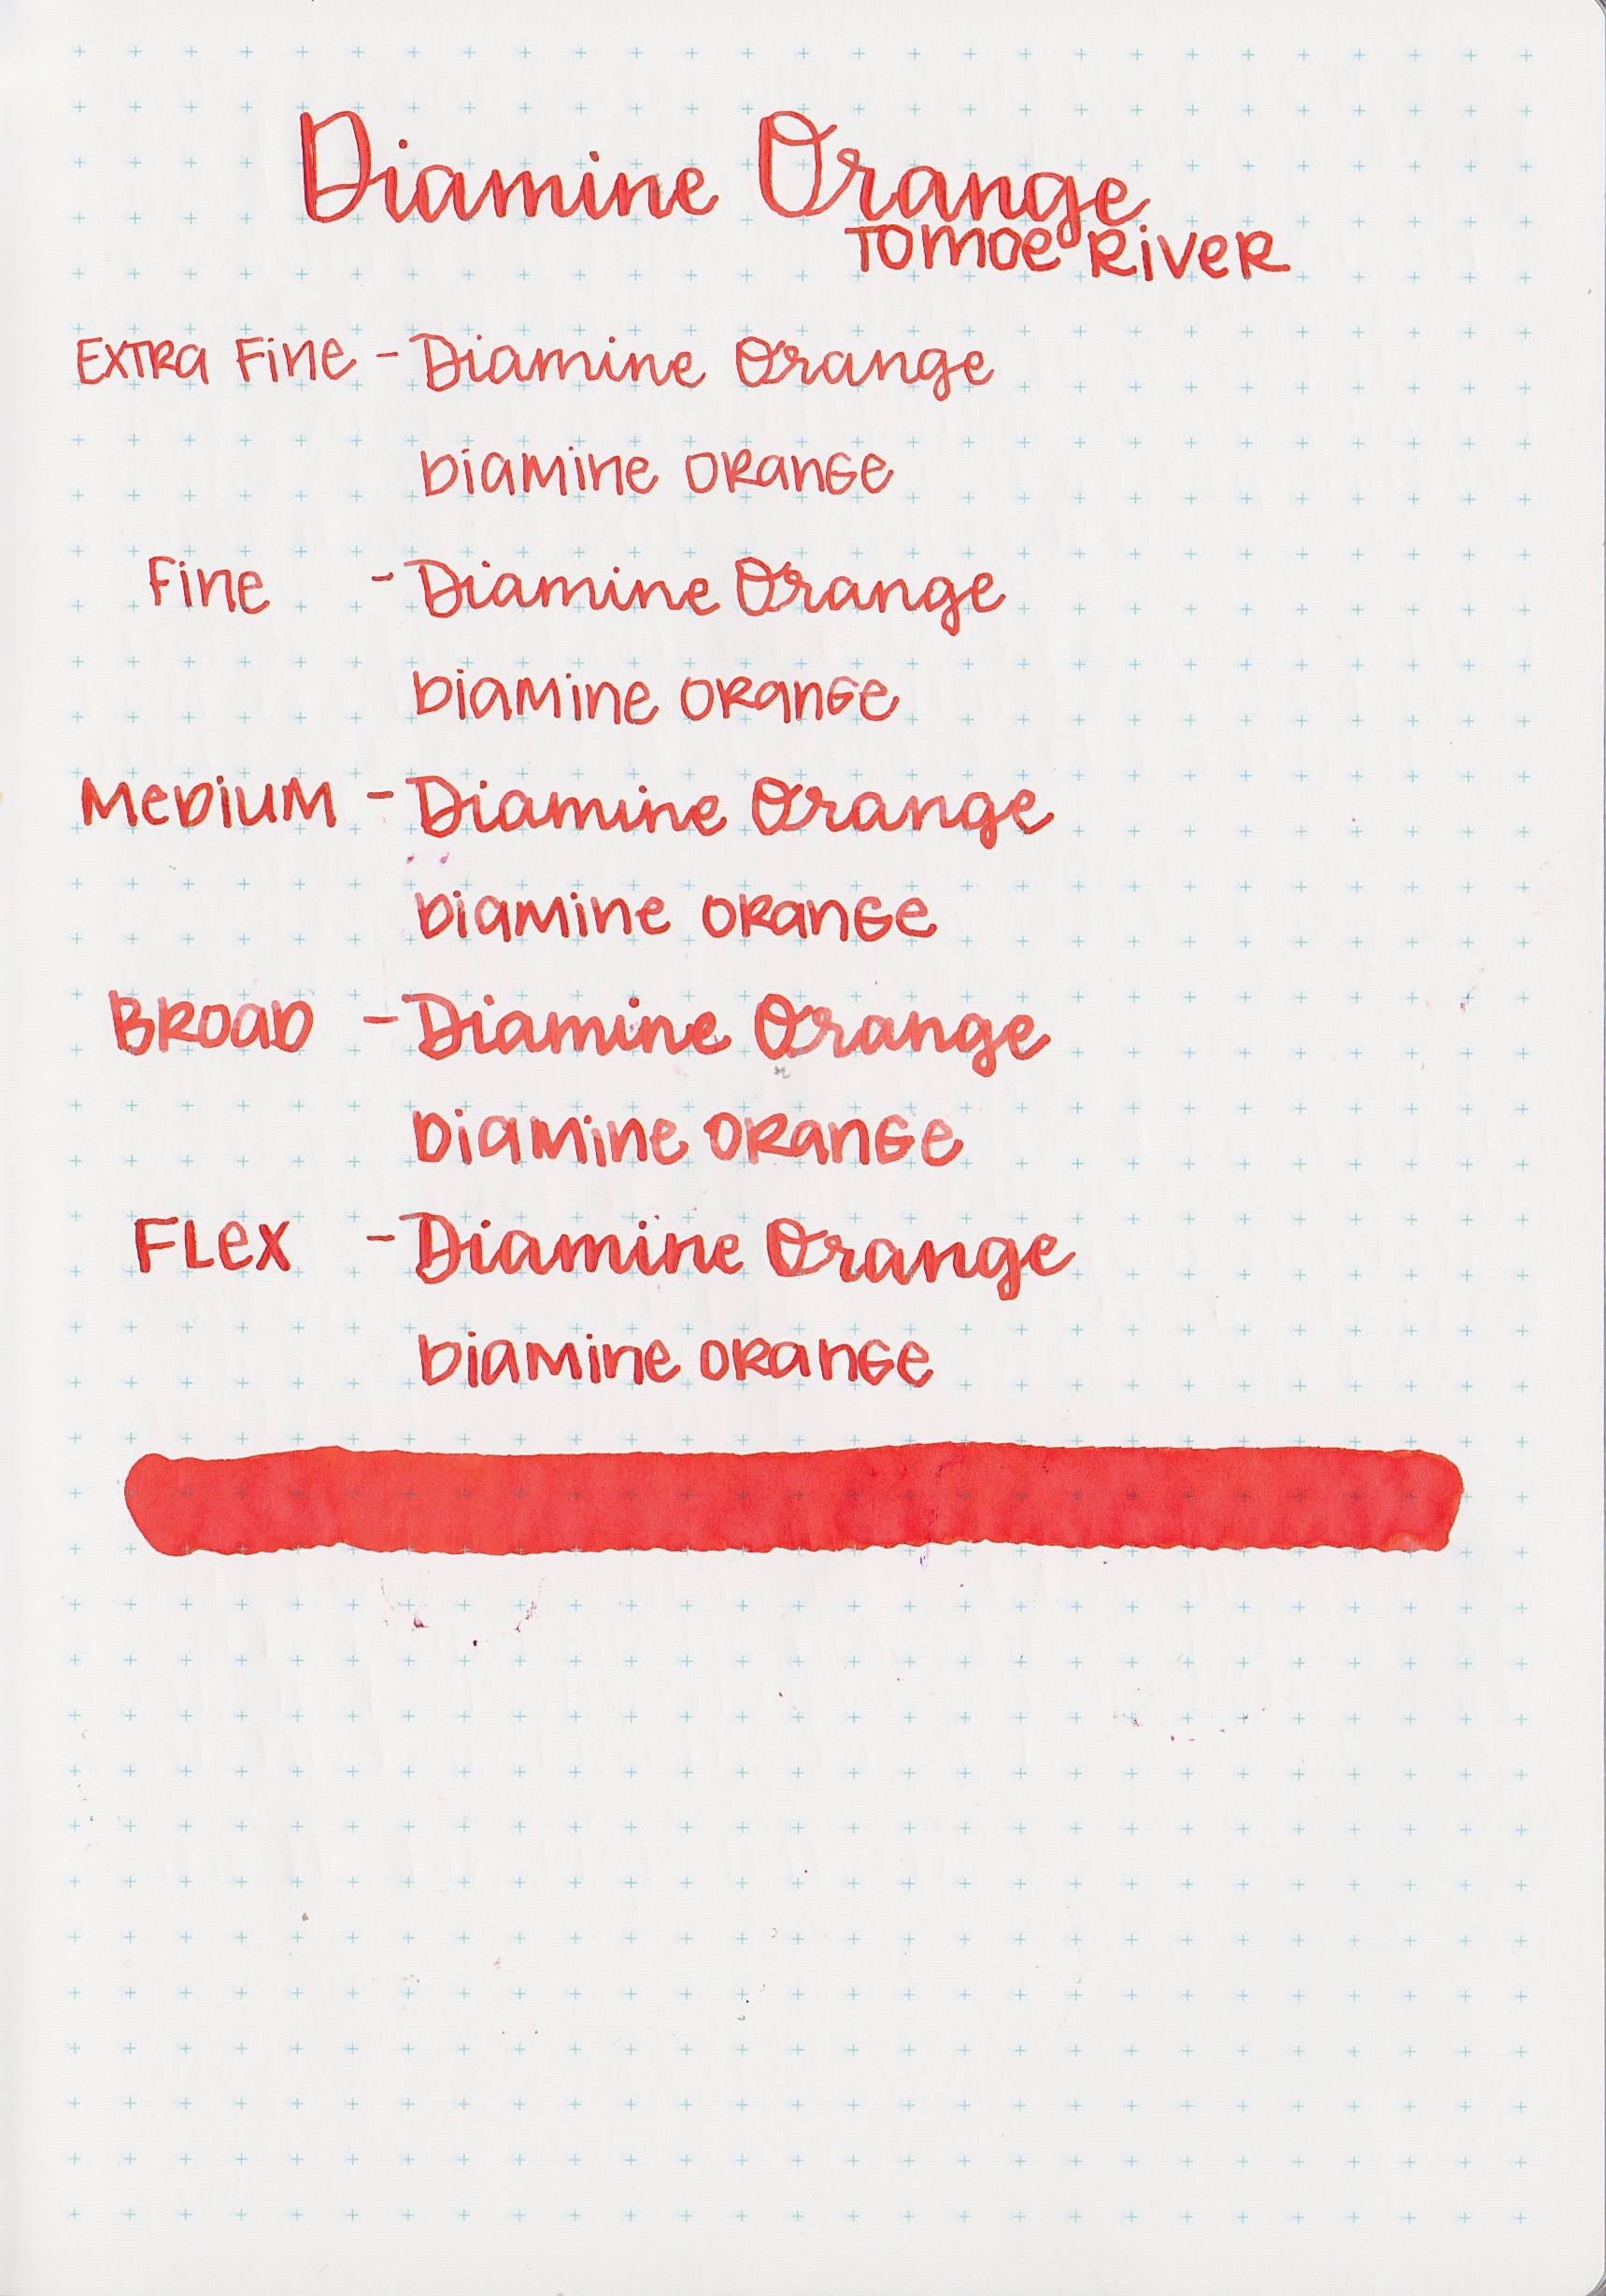 Diamine Orange
TOMOE RIVER
EXTRA FINE - Diamine Orange
DIAMINE ORANGE
FINE - Diamine Orange
DIAMINE ORANGE
MEDIUM - Diamine Orange
DIAMINE ORANGE
BROAD - Diamine Orange
DIAMINE ORANGE
FLEX - Diamine Orange
DIAMINE ORANGE